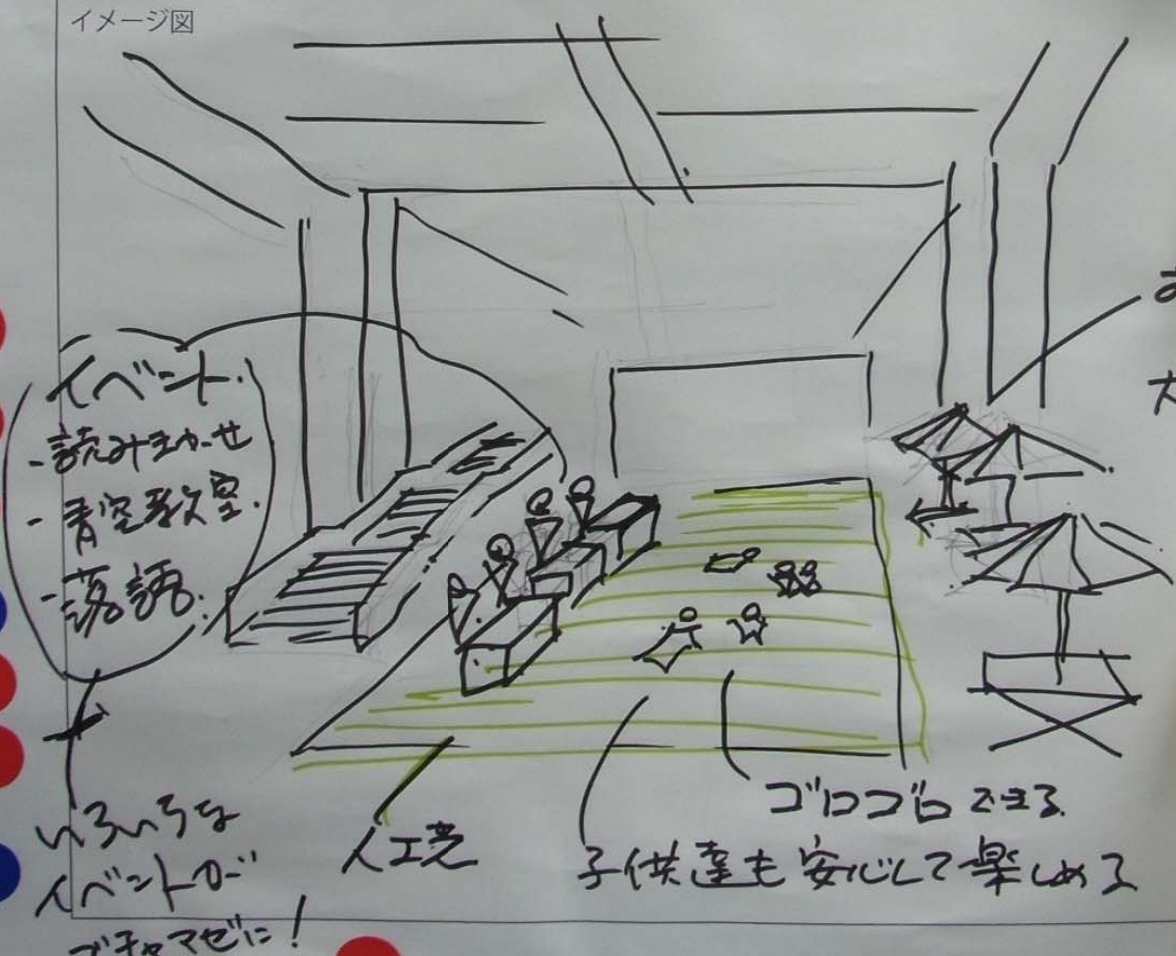 イメージ図
イベント.
- 読みきかせ
- 青空教室.
- 落語.
いろいろな
イベントが
ゴチャマゼに!
人工芝
ゴロゴロできる
子供達も安心して楽しめる